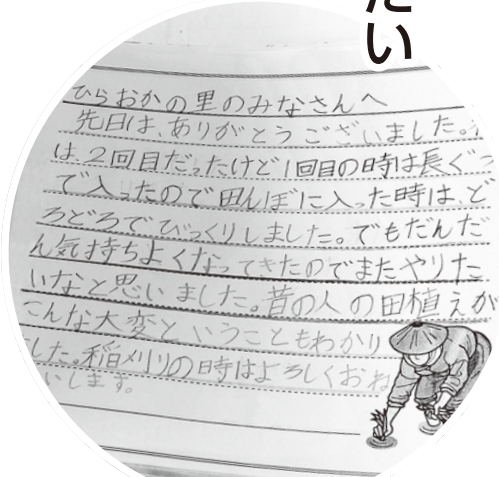 たい
ひらおかの里のみなさんへ
先日は、ありがとうございました。
は、2回目だったけど1回目の時は長ぐつ
で入ったので田んぼに入った時は、ど
ろどろでびっくりしました。でもだんだ
ん気持ちよくなってきたのでまたやりた
いなと思いました。昔の人の田植えが
こんな大変ということもわかり
した。稲刈りの時はよろしくおね
いします。